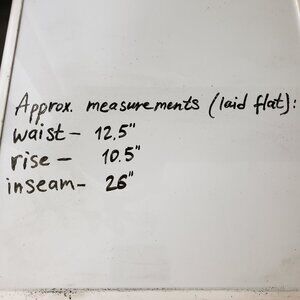 Approx. measurements (laid flat):
waist - 12.5"
rise - 10.5"
inseam - 26"